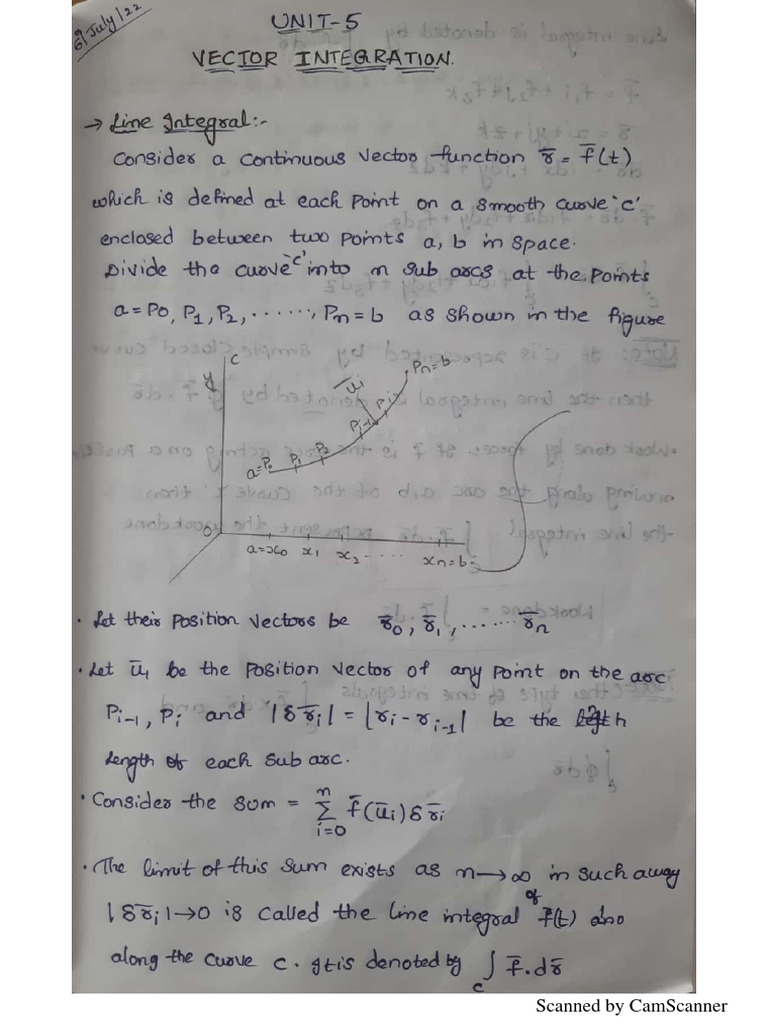 6/July/22
UNIT-5
VECTOR INTEGRATION.
→ Line Integral:-
Consider a continuous vector function r̅ = f̅(t)
which is defined at each point on a smooth curve 'c'
enclosed between two points a, b in space.
Divide the curve 'c' into n sub arcs at the points
a = P0, P1, P2, ......, Pn = b as shown in the figure
y
C
a=P0
P1
P2
Pi-1
Pi
u̅i
Pn=b
O
a=x0 x1 x2 .... xn=b
• Let their position vectors be r̅0, r̅1, ....... r̅n
• Let u̅i be the position vector of any point on the arc
Pi-1, Pi and |δr̅i| = |ri - ri-1| be the
length of each sub arc.
• Consider the sum = n∑i=0 f̅(u̅i) δr̅i
• The limit of this sum exists as n→∞ in such away
|δr̅i|→0 is called the line integral of f̅(t)
along the curve c. It is denoted by ∫c F̅.dr̅
Scanned by CamScanner